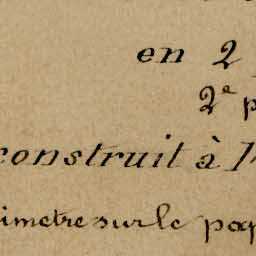 en 2
2e p
construit à l'
imetre sur le pap